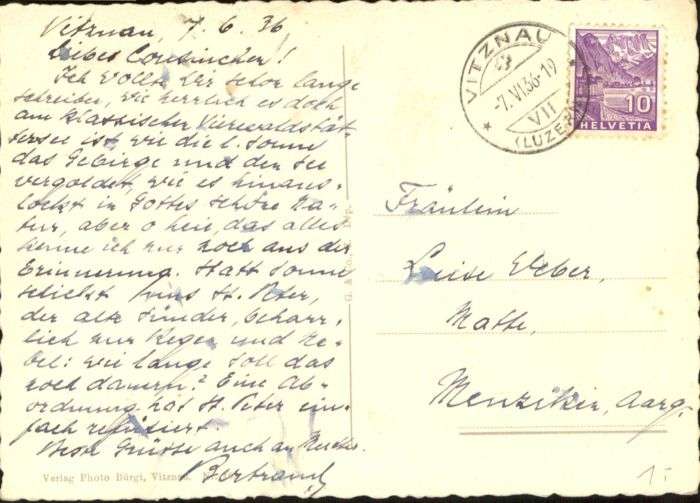 Vitznau, 7. 6. 36,
Liebes Cousinchen!
Ich wollte Dir schon lange
schreiben, wie herrlich es doch
am klassischen Vierwaldstät-
tersee ist, wie die l. Sonne
das Gebirge und den See
vergoldet, wie es hinaus-
lockt in Gottes schöne Na-
tur, aber o hein, das alles
kenne ich nur noch aus der
Erinnerung. Statt Sonne
schickt uns St. Peter,
der alte Sünder, beharr-
lich nur Regen und Ne-
bel: wie lange soll das
noch dauern? Eine Ab-
ordnung hat St. Peter ein-
fach refüsiert.
Beste Grüsse auch an
Bertrand
Verlag Photo Bürgi, Vitznau.
VITZNAU
-7.VI.36-19
VII
(LUZERN)
10
HELVETIA
Fräulein
Luise Weber,
Matte,
Menziken, Aarg.
1.-